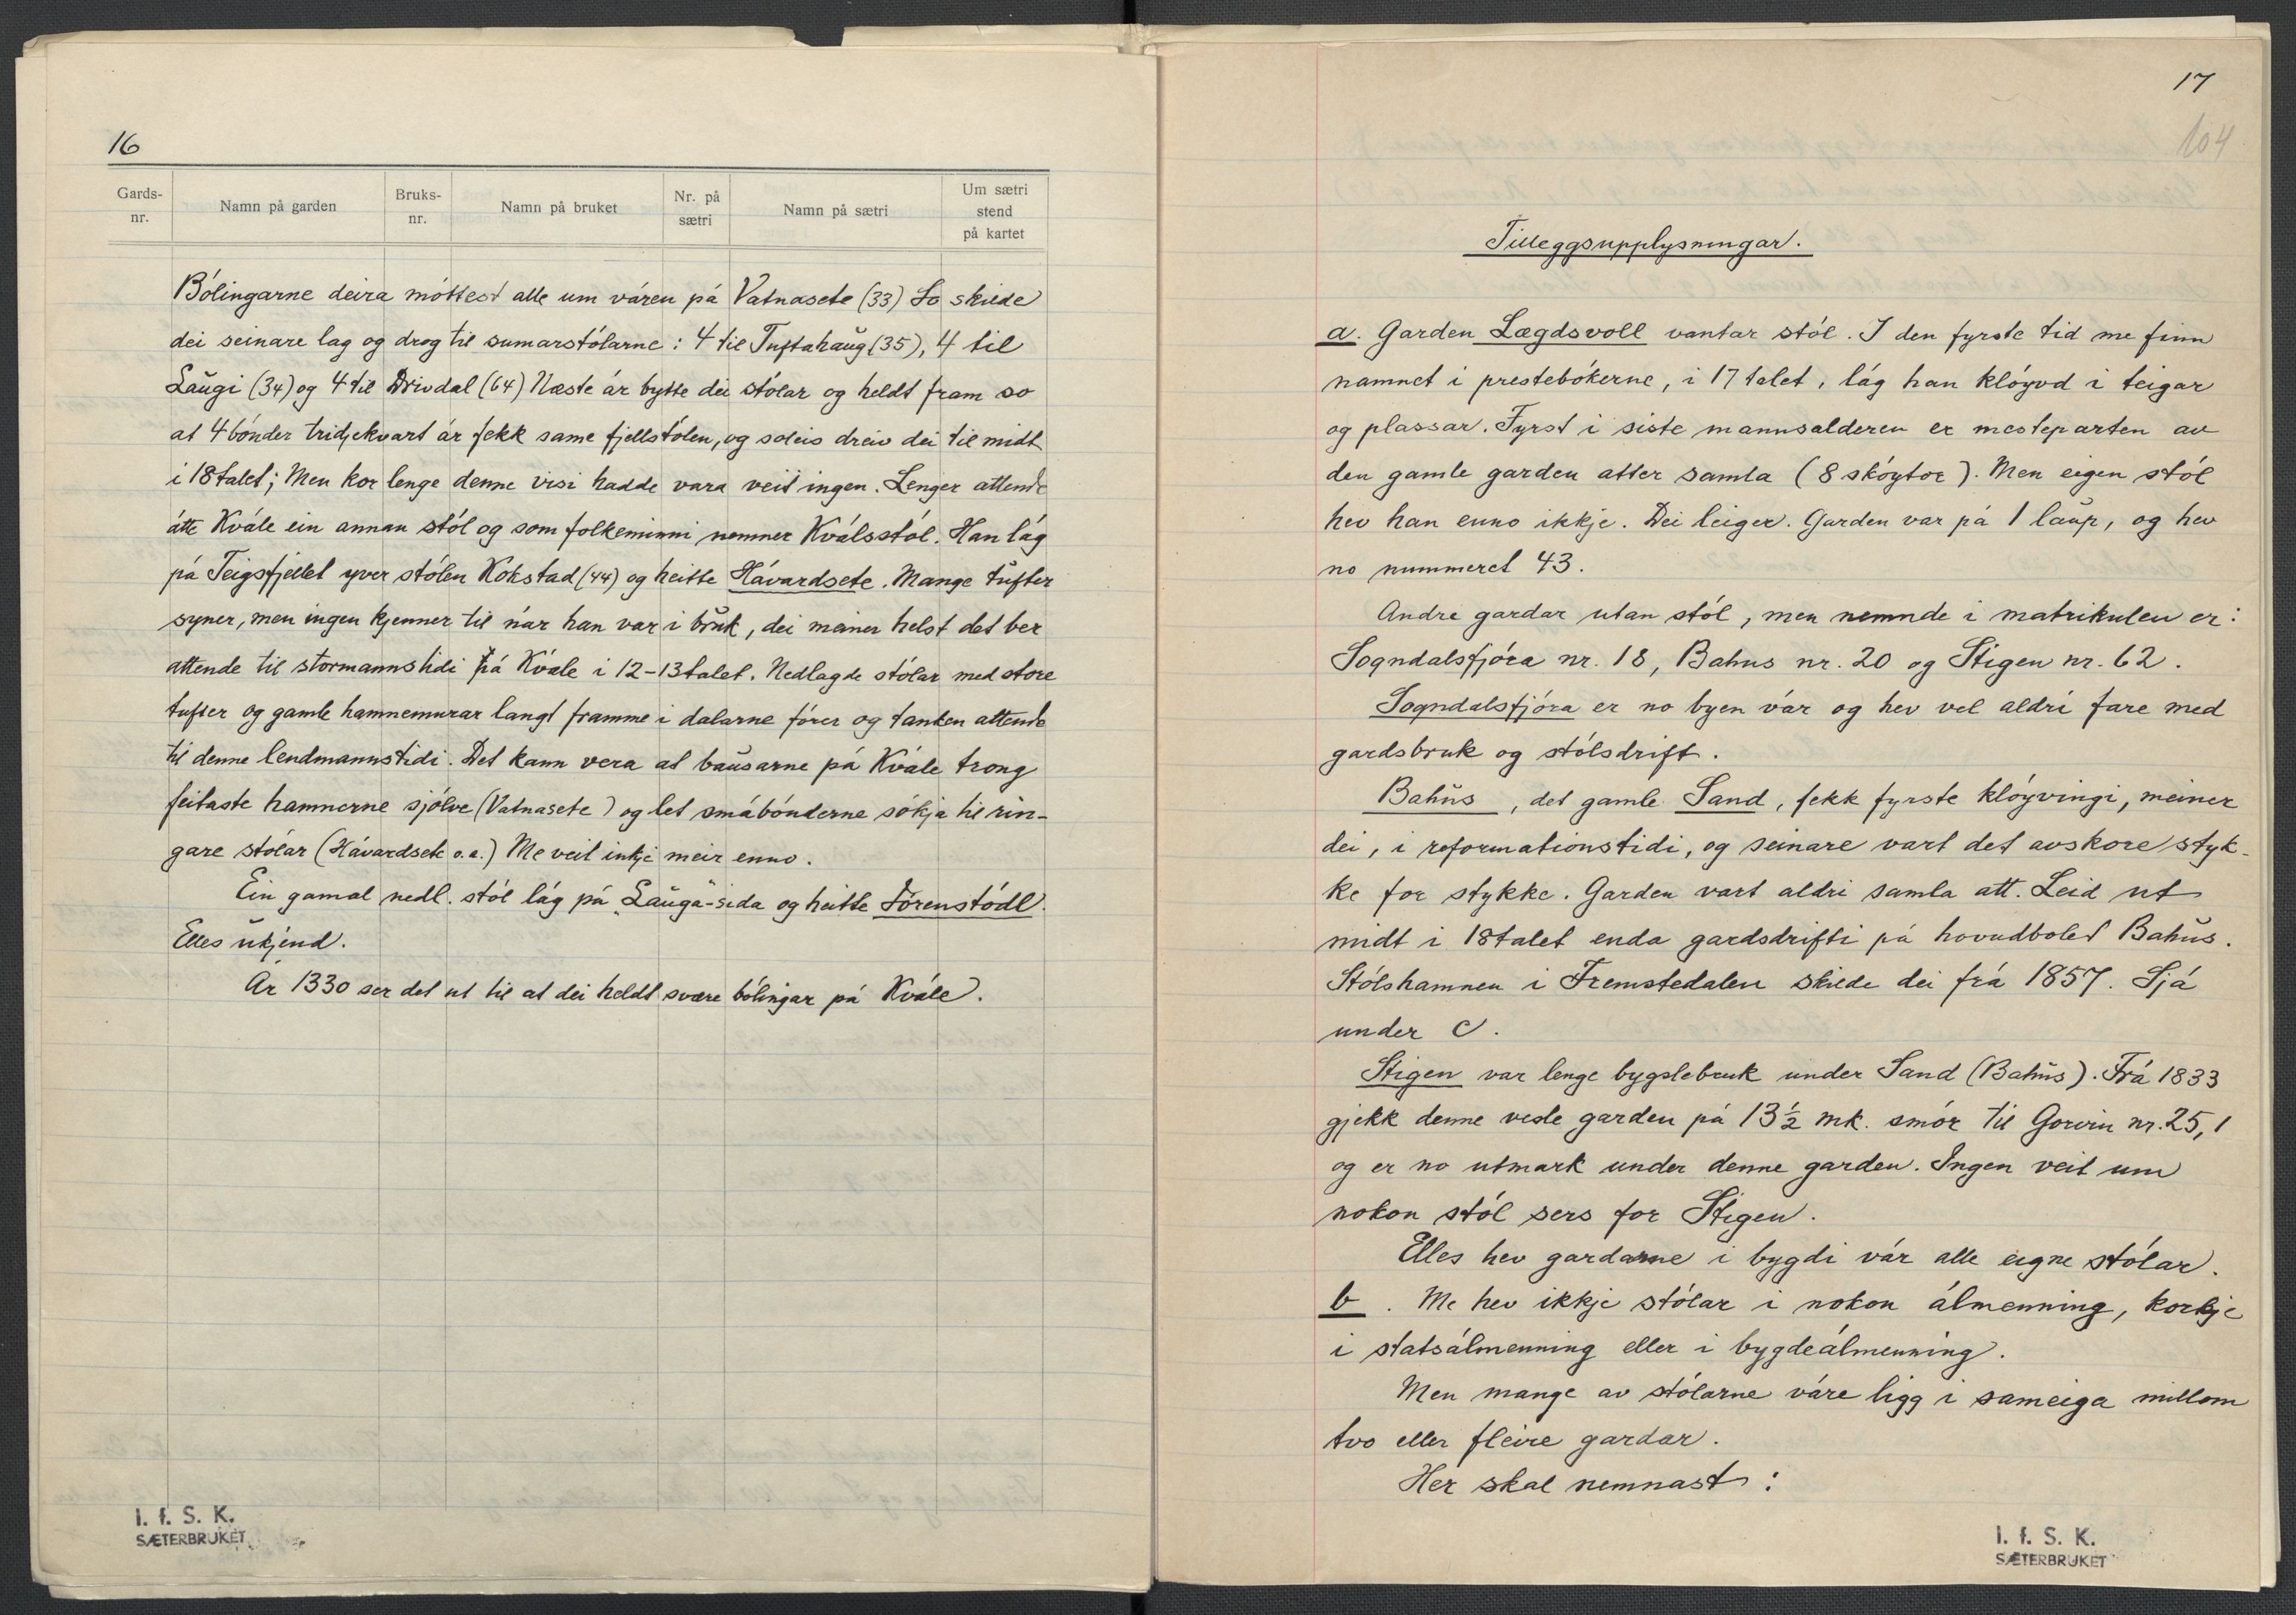 16
Gards-
nr.
Namn på garden
Bruks-
nr.
Namn på bruket
Nr. på
sætri
Namn på sætri
Um sætri
stend
på kartet
Bólingarne deira móttest alle um våren på Vatnasete (33) So skilde
dei seinare lag og drog til sumarstólarne: 4 til Tuftahaug (35), 4 til
Laugi (34) og 4 til Drivdal (64) Næste år bytte dei stólar og heldt fram so
at 4 bónder tridjekvart år fekk same fjellstólen, og soleis dreiv dei til midt
i 18talet; Men kor lenge denne visi hadde vara veit ingen. Lenger attende
átte Kvåle ein annan stól og som folkeminni nemner Kválsstól. Han låg
på Teigsfjellet yver stólen Kokstad (44) og heitte Håvardsete. Mange tufter
syner, men ingen kjenner til når han var i bruk, dei meiner helst det ber
attende til stormannstidi på Kvåle i 12-13talet. Nedlagde stólar med store
tufter og gamle hamnemurar langt framme i dalarne fórer og tanken attende
til denne lendmannstidi. Det kann vera at bausarne på Kvåle trong
feitaste hamnerne sjólve (Vatnasete) og let småbónderne sókja til rin-
gare stólar (Håvardsete o.a.) Me veit inkje meir enno.
Ein gamal nedl. stól låg på „Lauga"-sida og heitte Sórenstódl.
Elles ukjend.
År 1330 ser det ut til at dei heldt svære bólingar på Kvåle.
I. f. S. K.
SÆTERBRUKET
17
104
Tilleggsupplysningar.
a. Garden Lægdsvoll vantar stól. I den fyrste tid me finn
namnet i prestebókerne, i 17 talet, låg han klóyvd i teigar
og plassar. Fyrst i siste mannsalderen er mesteparten av
den gamle garden atter samla (8 skóytor). Men eigen stól
hev han enno ikkje. Dei leiger. Garden var på 1 laup, og hev
no nummeret 43.
Andre gardar utan stól, men nemnde i matrikulen er:
Sogndalsfjóra nr. 18, Bahus nr. 20 og Stigen nr. 62.
Sogndalsfjóra er no byen vår og hev vel aldri fare med
gardsbruk og stólsdrift.
Bahus, det gamle Sand, fekk fyrste klóyvingi, meiner
dei, i reformationstidi, og seinare vart det avskore styk-
ke for stykke. Garden vart aldri samla att. Leid ut
midt i 18talet enda gardsdrifti på hovudbolet Bahus.
Stólshamnen i Fremstedalen skilde dei frå 1857. Sjå
under c.
Stigen var lenge bygslebruk under Sand (Bahus). Frå 1833
gjekk denne vesle garden på 13½ mk. smór til Gorvin nr. 25,1
og er no utmark under denne garden. Ingen veit um
nokon stól sers for Stigen.
Elles hev gardarne i bygdi vår alle eigne stólar.
b. Me hev ikkje stólar i nokon álmenning, korkje
i statsálmenning eller i bygdeálmenning.
Men mange av stólarne våre ligg i sameiga millom
tvo eller fleire gardar.
Her skal nemnast:
I. f. S. K.
SÆTERBRUKET